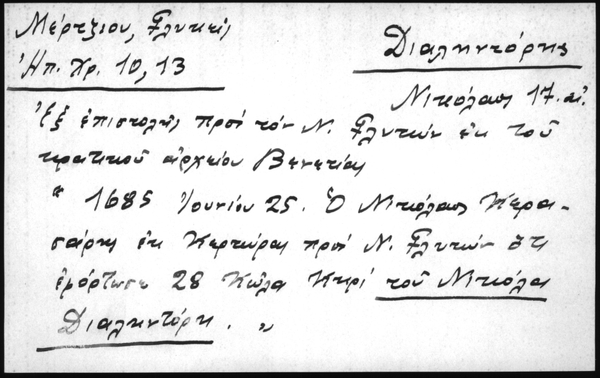 Μέρτζιου, Γλυκεῖς
Ἠπ. Χρ. 10, 13
Διαλην­τόρης
Νικόλαος 17. αἰ.
Ἐξ ἐπιστολῆς πρός τόν Ν. Γλυκύν ἐκ τοῦ
κρατικοῦ ἀρχείου Βενετίας
" 1685 Ἰουνίου 25. Ὁ Νικόλαος Κερα-
σάρης ἐκ Κερκύρας πρός Ν. Γλυκύν ὅτι
ἐφόρτωσε 28 κῶλα κηρί τοῦ Νικόλα
Διαληντόρη. "